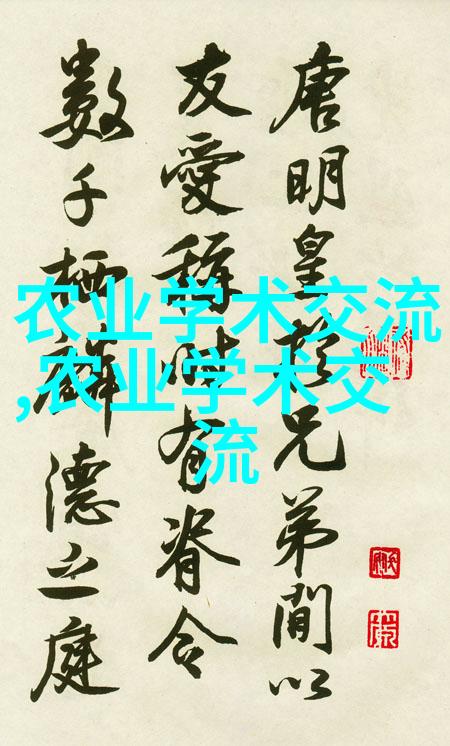 唐明皇於兄弟間以
友愛稱時有脊令
數千栖麟德之庭
农业学术交流
,农业学术交
流